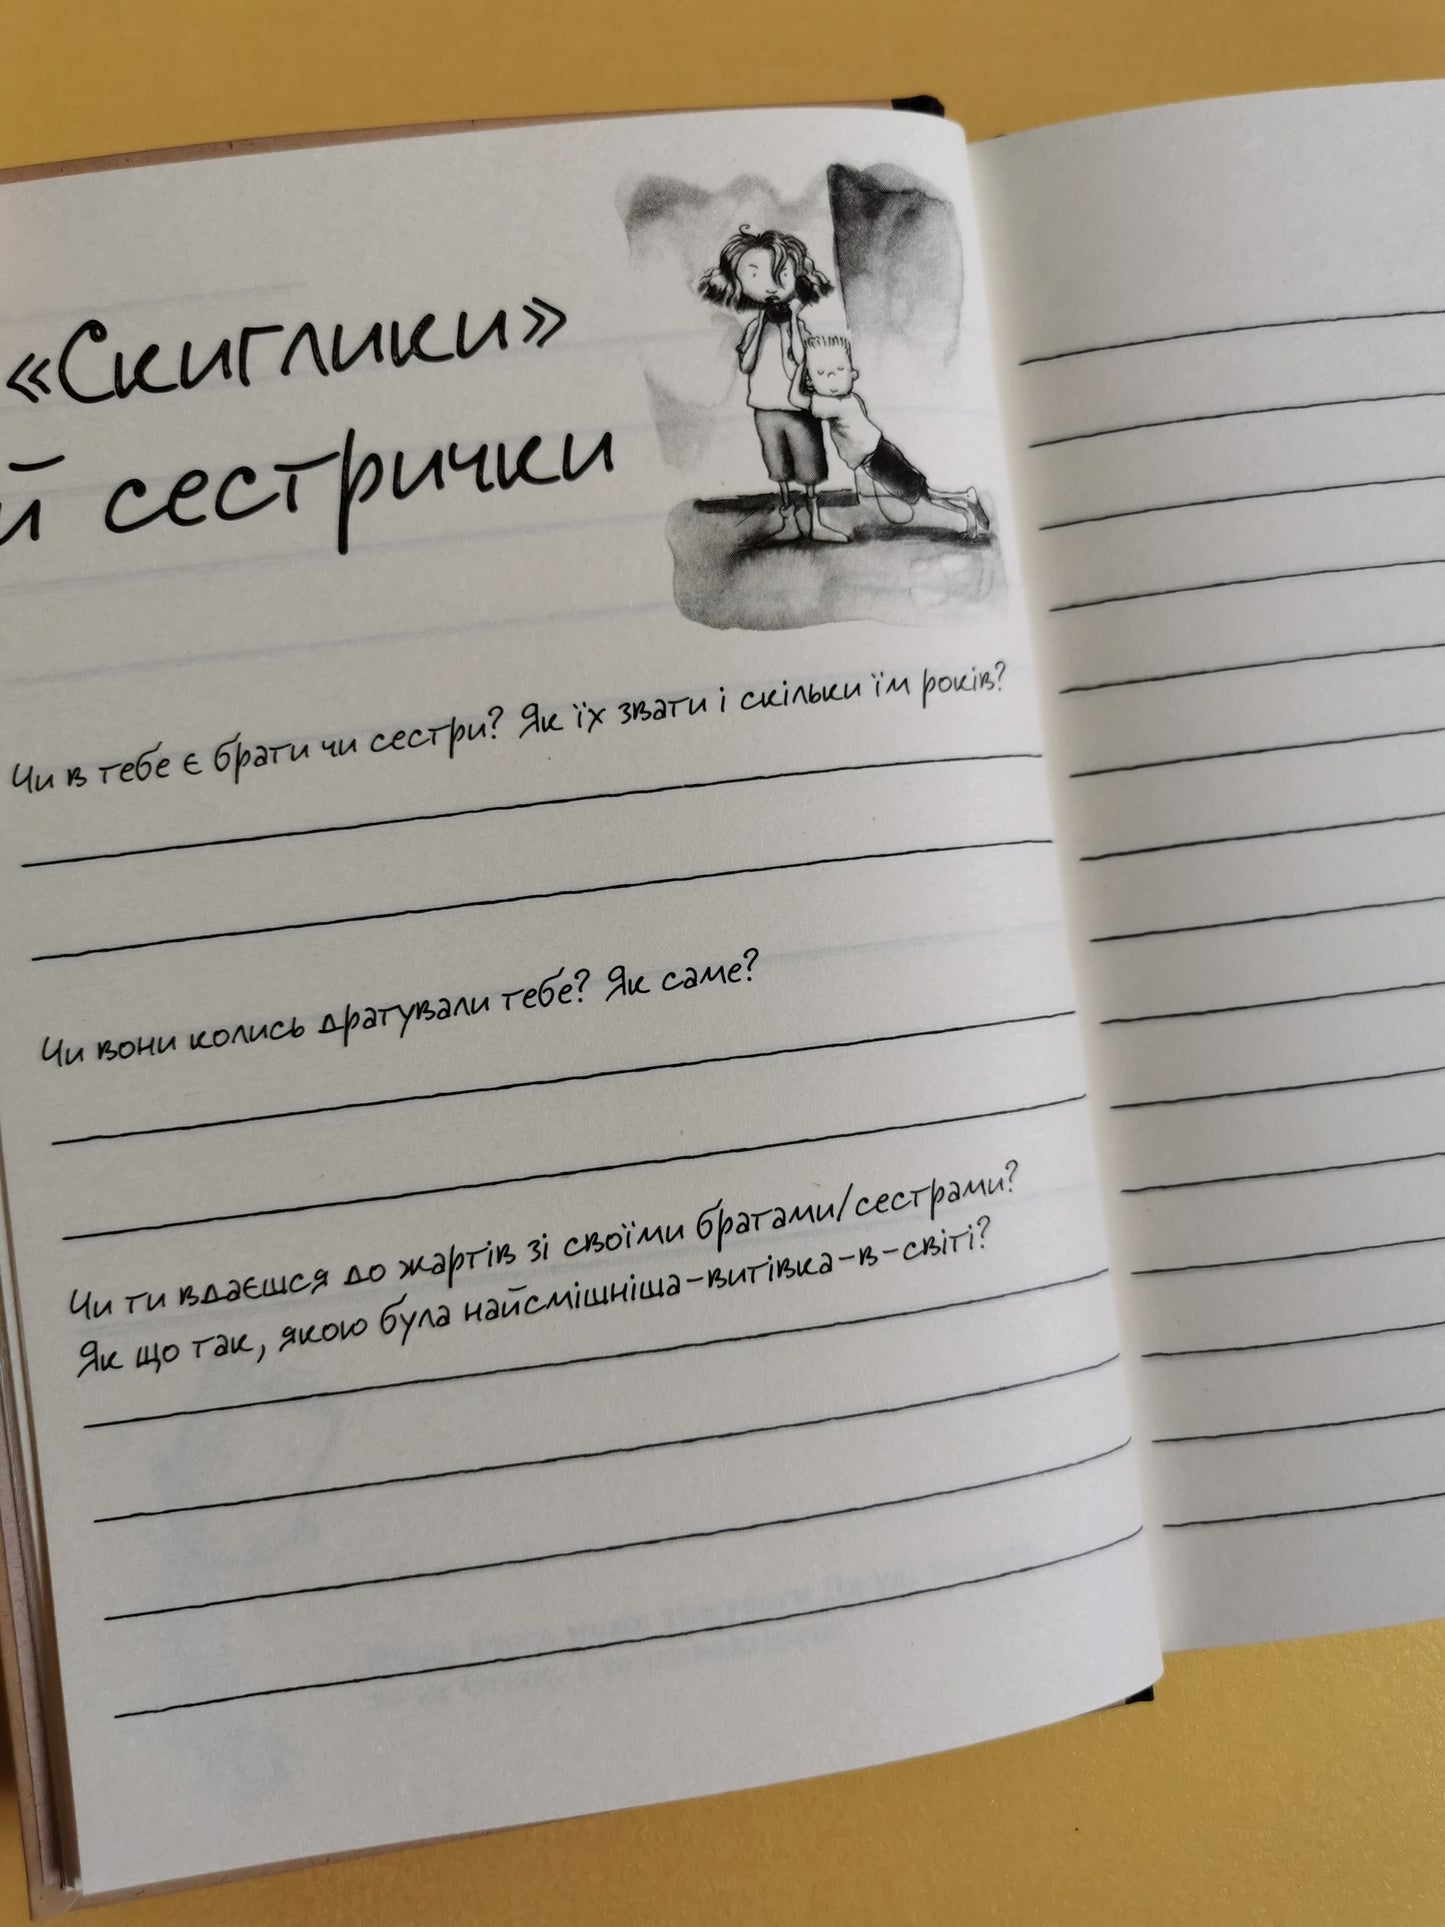 «Скиглики»
й сестрички
Чи в тебе є брати чи сестри? Як їх звати і скільки їм років?
Чи вони колись дратували тебе? Як саме?
Чи ти вдаєшся до жартів зі своїми братами/сестрами?
Як що так, якою була найсмішніша-витівка-в-світі?